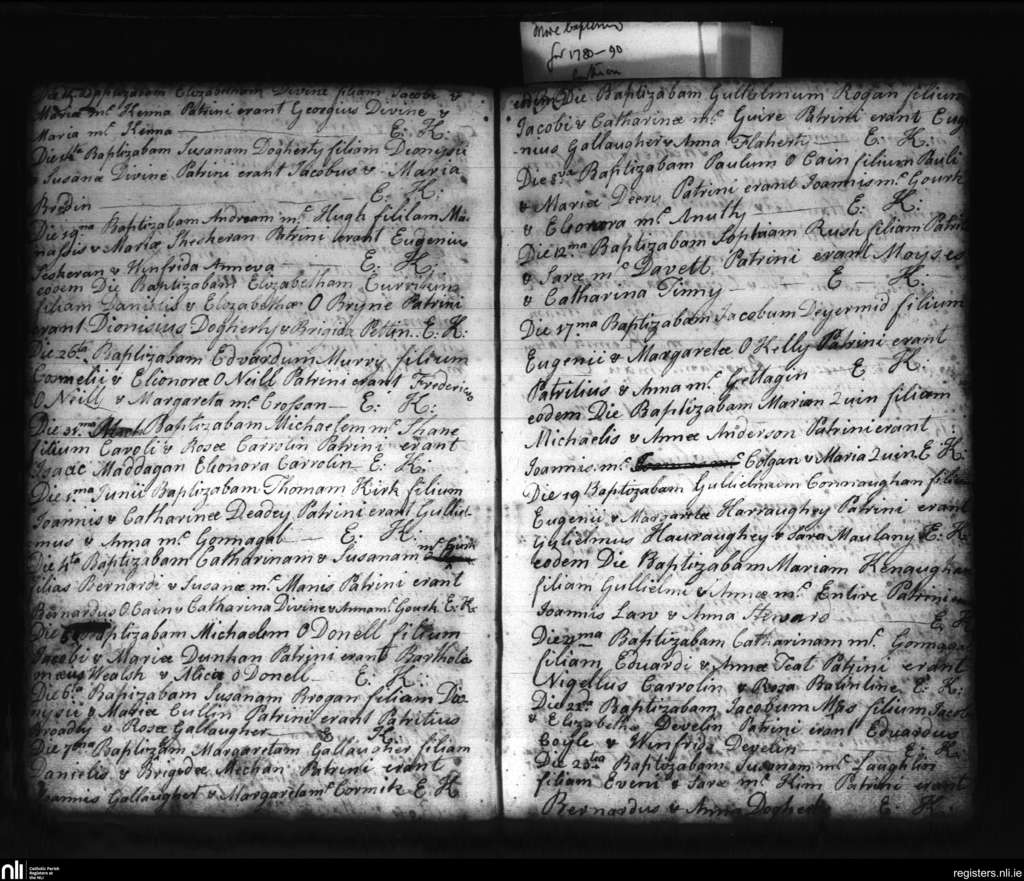 More baptisms
for 1780-90
Baptizabam Elizabetham Divine filiam Jacobi &
Maria mc Kenna Patrini erant Georgius Divine &
Maria mc Kinna — E: K:
Die 14ta Baptizabam Susanam Dogherty filiam Dionysii
& Susanæ Divine Patrini erant Jacobus & Maria
Bredin — E: K:
Die 19ma Baptizabam Andream mc Hugh fililam Ma-
nassis & Mariæ Shesheran Patrini erant Eugenius
Sesheran & Winfrida Anneva — E: K:
eodem Die Baptizabam Elizabetham Currinum
filiam Danielis & Elizabethæ O Bryne Patrini
erant Dionisius Dogherty & Brigida Pettin. E: K:
Die 26ta Baptizabam Edvardum Murry filium
Cornelii & Elionoræ O Neill Patrini erant Fredericus
O Neill & Margareta mc Crossan — E: K:
Die 31ma Baptizabam Michaelem mc Shane
filium Caroli & Rosæ Carrolin Patrini erant
Isaac Maddagan Elionora Carrolin — E: K.
Die 1ma Junii Baptizabam Thomam Kirk filium
Ioannis & Catharinæ Deadey Patrini erant Gulliel-
mus & Anna mc Gonnagal — E: K.
Die 4ta Baptizabam Catharinam & Susanam mc Gurk
filias Bernardi & Susanæ mc Manis Patrini erant
Bernardus O Cain & Catharina Divine & Anna mc Gourk E: K:
Die Baptizabam Michaelem O Donell filium
Jacobi & Mariæ Dunhan Patrini erant Bartholo
mæus Wealsh & Alicia O Donell — E. K:
Die 6ta Bapizabam Susanam Brogan filiam Dio-
nysii & Mariæ Cullin Patrini erant Patritius
Broadly & Rosæ Gallaugher — E K:
Die 7ma Baptizam Margaretam Gallaugher filiam
Danielis & Brigidæ Mechan Patrini erant
Ioannis Gallaugher & Margareta mc Cormik E: K
eodem Die Baptizabam Gulielmum Rogan filium
Jacobi & Catharinæ mc Guire Patrini erant Euge
nius Gallaugher & Anna Flaherty — E: K:
Die 8va Baptizabam Paulum O Cain filium Pauli
& Mariæ Deery Patrini erant Ioannis mc Gourk
& Eleonora mc Anulty — E: K:
Die 12ma Baptizabam Sophiam Rush filiam Patrit
& Saræ mc Davett. Patrini erant Moyses
& Catharina Tinny — E — K:
Die 17ma Baptizabam Jacobum Deyermid filium
Eugenii & Margaretæ O Kelly Patrini erant
Patritius & Anna mc Gettagin E K
eodem Die Baptizabam Mariam Quin filiam
Michaelis & Annæ Anderson Patrini erant
Ioannis mc Colgan & Maria Quin E K
Die 19 Baptozabam Gullielmum Connaughan filium
Eugenii & Margaretæ Harraughey Patrini erant
Gulielmus Hauraughey & Sara Maulany E: K
eodem Die Baptizabam Mariam Kenaughan
filiam Gullielmi & Annæ mc Entire Patrini
Ioannis Law & Anna Steward — E: K
Die 21ma Baptizabam Catharinam mc Gonnagal
filiam Eduardi & Annæ Teat Patrini erant
Nigellus Carrolin & Rosa Balintine E: K:
Die 22a Baptizabam Jacobum filium Jacobi
& Elizabetha Develin Patrini erant Eduardus
Coyle & Winfrida Develin — E: K:
Die Baptozabam Susanam mc Laughlin
filiam Eveni & Saræ mc Kim Patrini erant
Bernardus & Anna Dogherty E K:
nli
Catholic Parish
Registers at
the NLI
registers.nli.ie